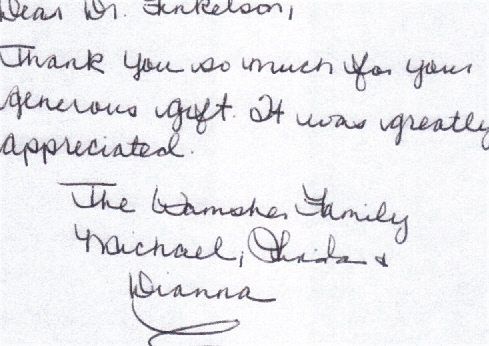 Dear Dr. Finkelson,
Thank you so much for your
generous gift. It was greatly
appreciated.
The Family
Michael, &
Dianna